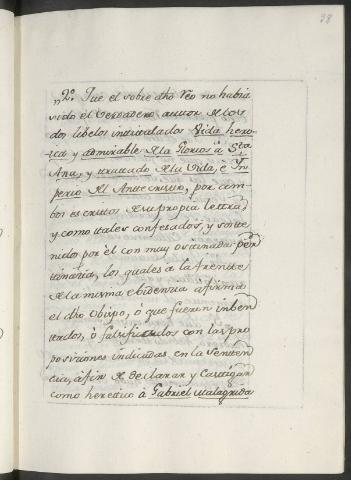 38
„2.º Que el sobre dho Reo no habia
sido el verdadero autor de los
dos libelos intitulados Vida hero-
ica y admirable de la Gloriosa Sta
Ana, y tratado de la Vida, è Im-
perio del Antecristo, por am-
bos escritos de su propia letra,
y como tales confesados, y soste
nidos por èl con muy ostinada per
tinacia, los quales a la frente
de la misma evidencia àfirma
el dho Obispo, ò que fueron inben
tados, ò falsificados con las pro
posiciones indicadas en la Senten
cia, àfin de declarar y Castigar
como heretico à Gabriel Malagrida